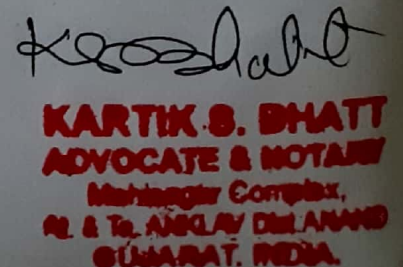 KARTIK S. BHATT
ADVOCATE & NOTARY
Complex,
At. & Ta. ANKLAV Dist. ANAND
GUJARAT, INDIA.